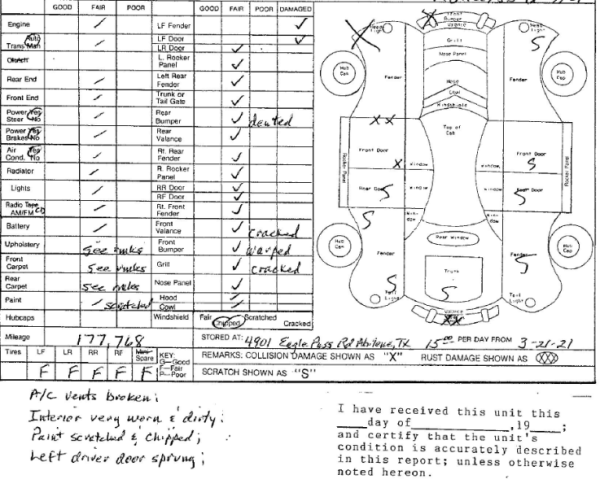 GOOD FAIR POOR GOOD FAIR POOR DAMAGED
Engine LF Fender
Auto Trans Man LF Door
LR Door
Clutch L. Rocker Panel
Rear End Left Rear Fender
Front End Trunk or Tail Gate
Power Yes Steer No Rear Bumper dented
Power Yes Brakes No Rear Valance
Air Yes Cond. No Rt. Rear Fender
Radiator R. Rocker Panel
Lights RR Door
RF Door
Radio Tape AM/FM CD Rt. Front Fender
Battery Front Valance cracked
Upholstery See rmks Front Bumper warped
Front Carpet See rmks Grill cracked
Rear Carpet See rmks Nose Panel
Paint scratched Hood
Cowl
Hubcaps Windshield Fair Chipped Scratched Cracked
Mileage 177,768 STORED AT: 4901 Eagle Pass Rd Abilene, TX 15.00 PER DAY FROM 3-21-21
Tires LF LR RR RF Spare KEY: G—Good F—Fair P—Poor
F F F F F
REMARKS: COLLISION DAMAGE SHOWN AS "X" RUST DAMAGE SHOWN AS XXX
SCRATCH SHOWN AS "S"
Front Bumper Valance
Head Light
Grill
Nose Panel
Hub Cap Fender Hood Fender Hub Cap
Cowl
Windshield
X X
Top of Cab
Front Door X Window Window Front Door S
Rocker Panel Rocker Panel
Rear Door S Window Window Rear Door S
S Window Window
Rear Window
Hub Cap Fender Fender Hub Cap
S Trunk S S
Tail Light Tail Light
XX
A/C vents broken;
Interior very worn & dirty;
Paint scratched & chipped;
Left driver door sprung;
I have received this unit this
____day of______________,19___;
and certify that the unit's
condition is accurately described
in this report; unless otherwise
noted hereon.